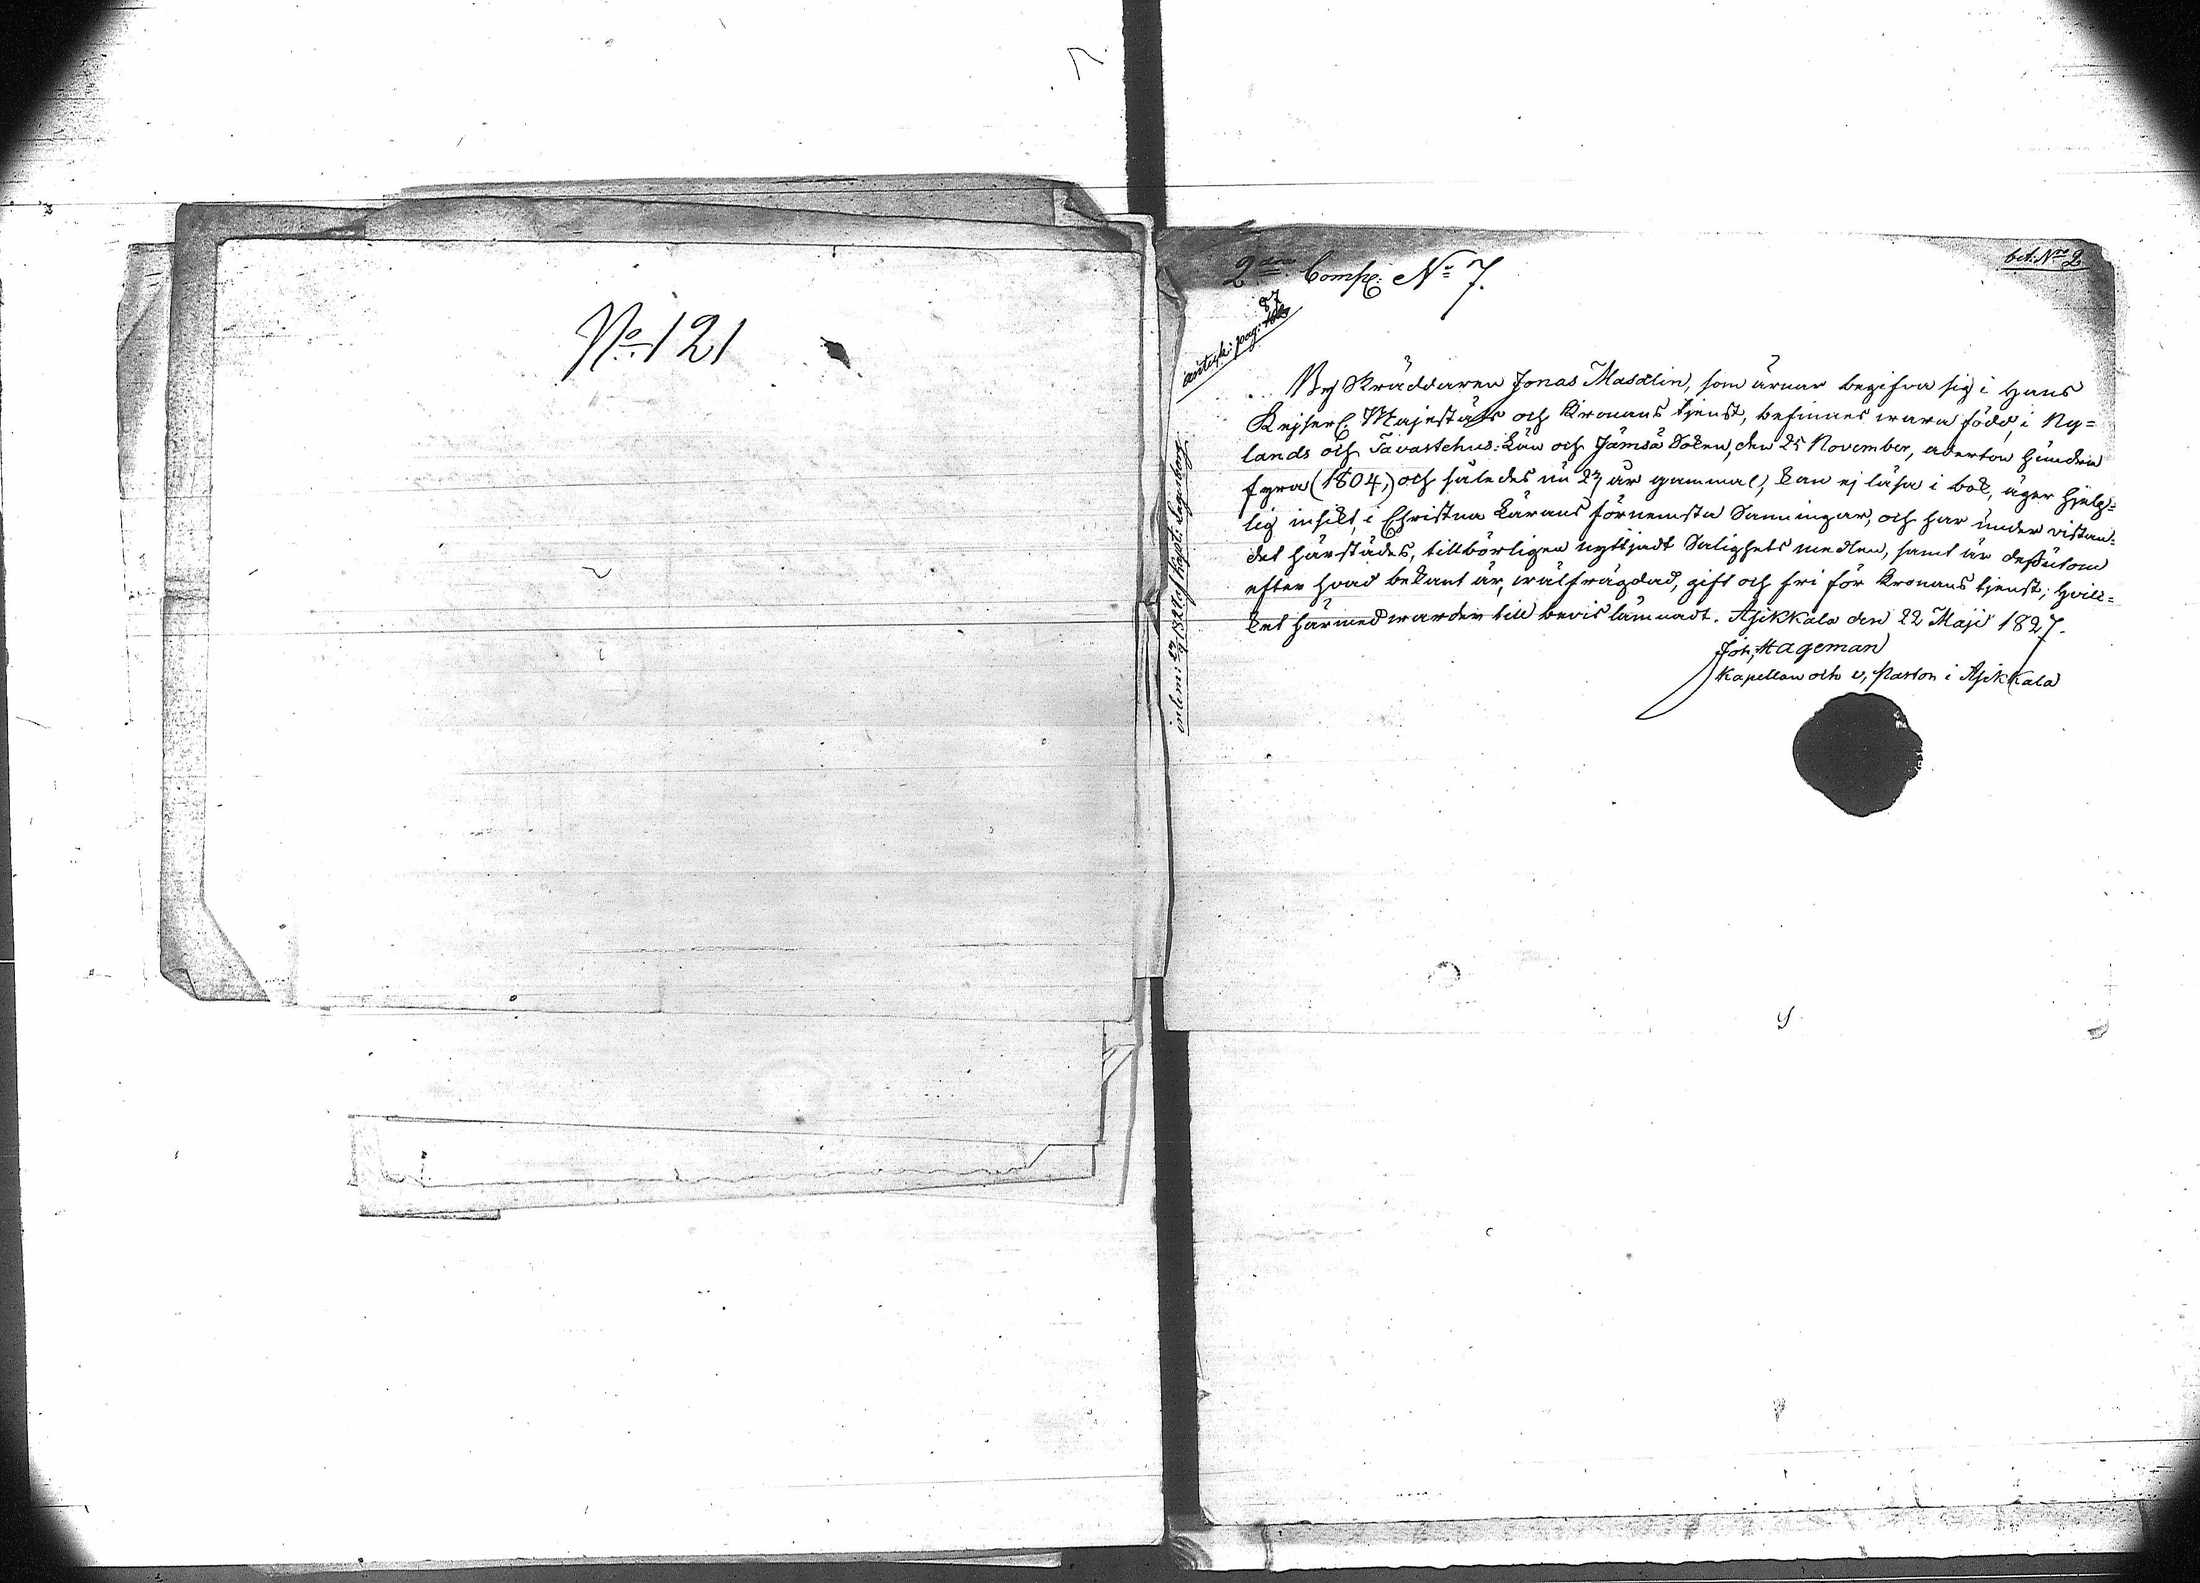 No. 121
2dra Comp: No 7.
bil. No 2
Skräddaren Jonas Masalin, som ärnar begifva sig i Hans
Kejserl. Majestäts och Kronans tjenst, befinnes wara född i Ny=
lands och Tavastehus Län och Jämsä Soken, den 25 November, aderton hundra
fyra (1804,) och således nu 23 år gammal; kan ej läsa i bok, äger hjelp=
lig insikt i Christna Lärans förnemsta Sanningar, och har under vistan=
det härstädes, tillbörligen nyttjadt Salighets medlen, samt är dessutom
efter hvad bekant är, wälfrägdad, gift och fri för Kronans tjenst; hvil=
ket härmed warder till bevis lämnadt. Asikkala den 22 Maji 1827.
Joh, Hageman
Kapellan och v, Pastor i Asikkala